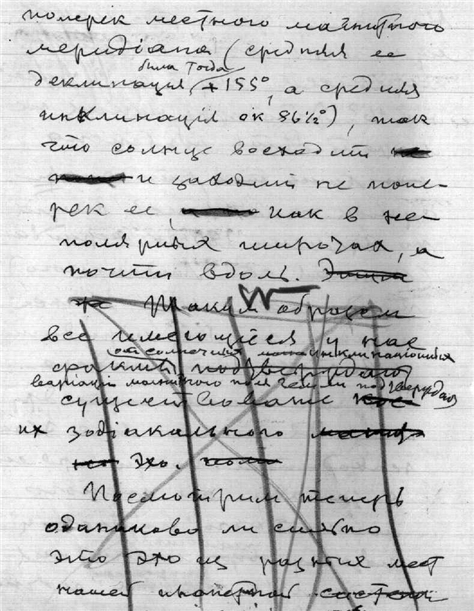 поперек местного магнитного
меридиана (средняя ее
была тогда
деклинація +155°, а средняя
инклинація ок 86½°), так
что солнце восходит
и заходит не попе-
рек ее, как в не-
полярных широтах, а
почти вдоль.
Таким образом
все имеющіеся у нас
от солнечных инклинаціонных
варіаціи магнитного поля земли подтверждаю
существованіе
их зодіакального
эхо.
Посмотрим теперь
одинаково ли сильно
это эхо из разных мест
нашей планетной система